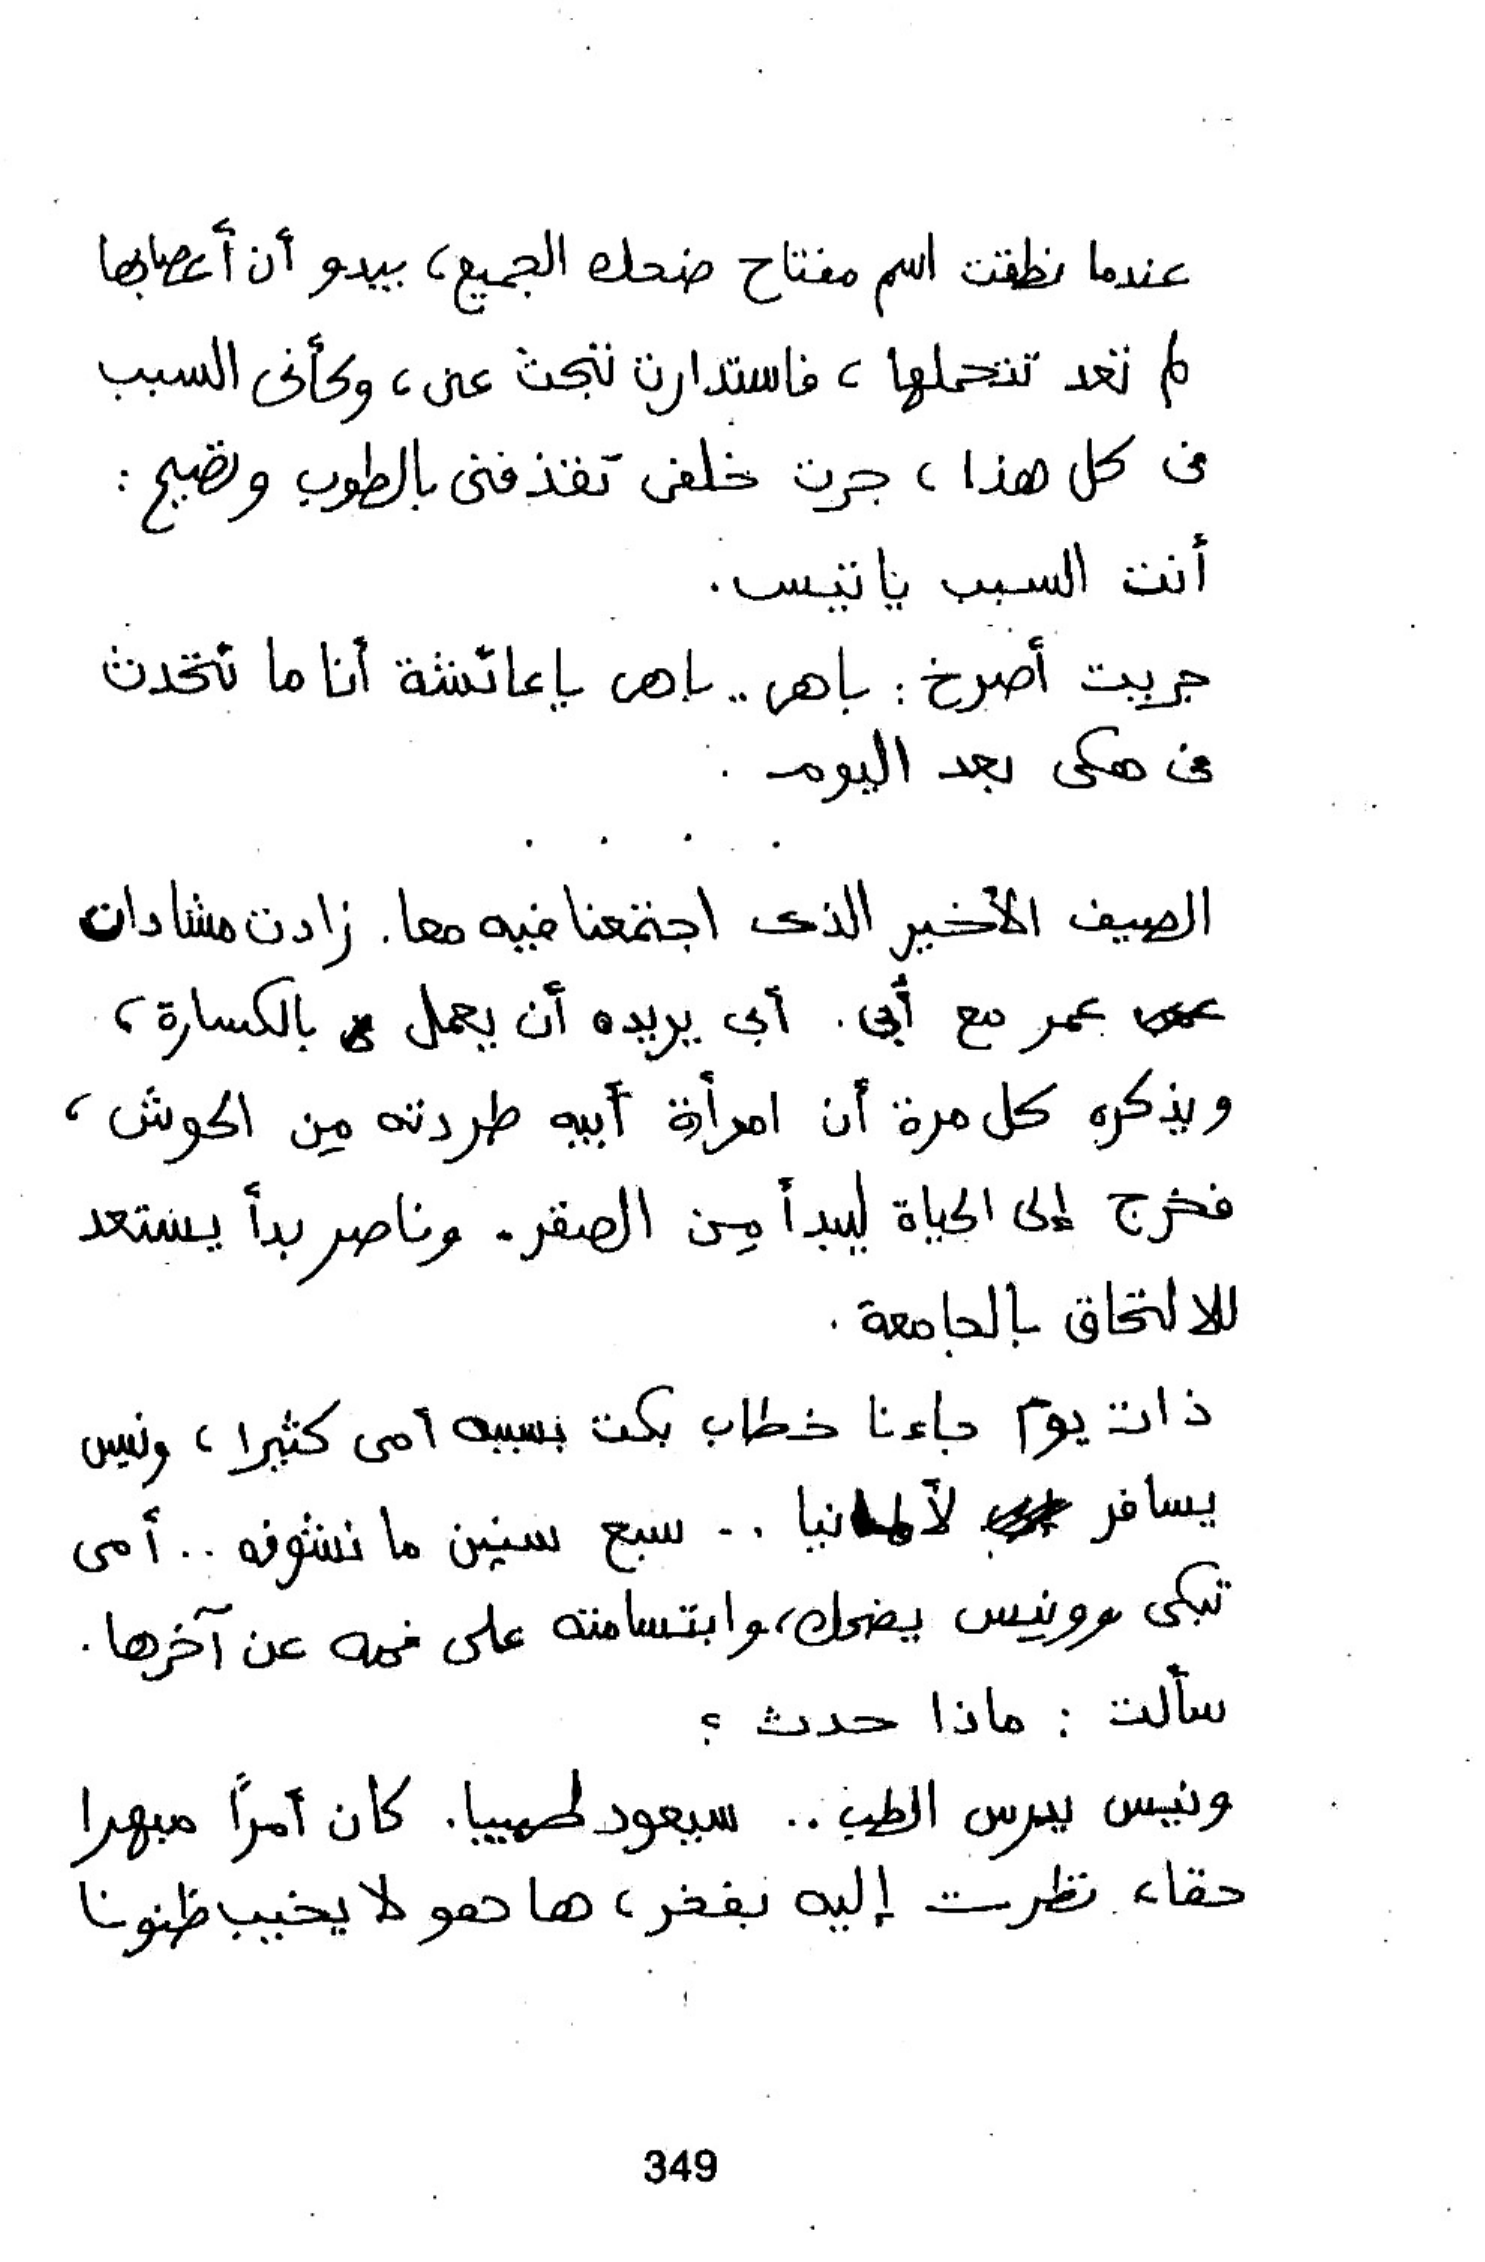 عندما نطقت اسم مفتاح ضحك الجميع، يبدو أن أعصابها
لم تعد تتحملها، فاستدارت تبحث عنى، وكأنى السبب
فى كل هذا، جرت خلفى تقذفنى بالطوب وتصيح:
أنت السبب يا تيس.
جريت أصرخ: باهى.. باهى يا عائشة أنا ما نتحدث
فى هكى بعد اليوم.
. . . .
الصيف الأخير الذى اجتمعنا فيه معا. زادت مشادات
عمر مع أبى. أبى يريده أن يعمل بالكسارة،
ويذكره كل مرة أن امرأة أبيه طردته مِن الحوش،
فخرج إلى الحياة ليبدأ مِن الصفر. وناصر بدأ يستعد
للالتحاق بالجامعة.
ذات يوم جاءنا خطاب بكت بسببه أمى كثيرا، ونيس
يسافر لألمانيا .. سبع سنين ما نشوفه .. أمى
تبكى وونيس يضحك، وابتسامته على فمه عن آخرها.
سألت: ماذا حدث؟
ونيس يدرس الطب .. سيعود طبيبا. كان أمرًا مبهرا
حقا، نظرت إليه بفخر، ها هو لا يخيب ظنوننا
349